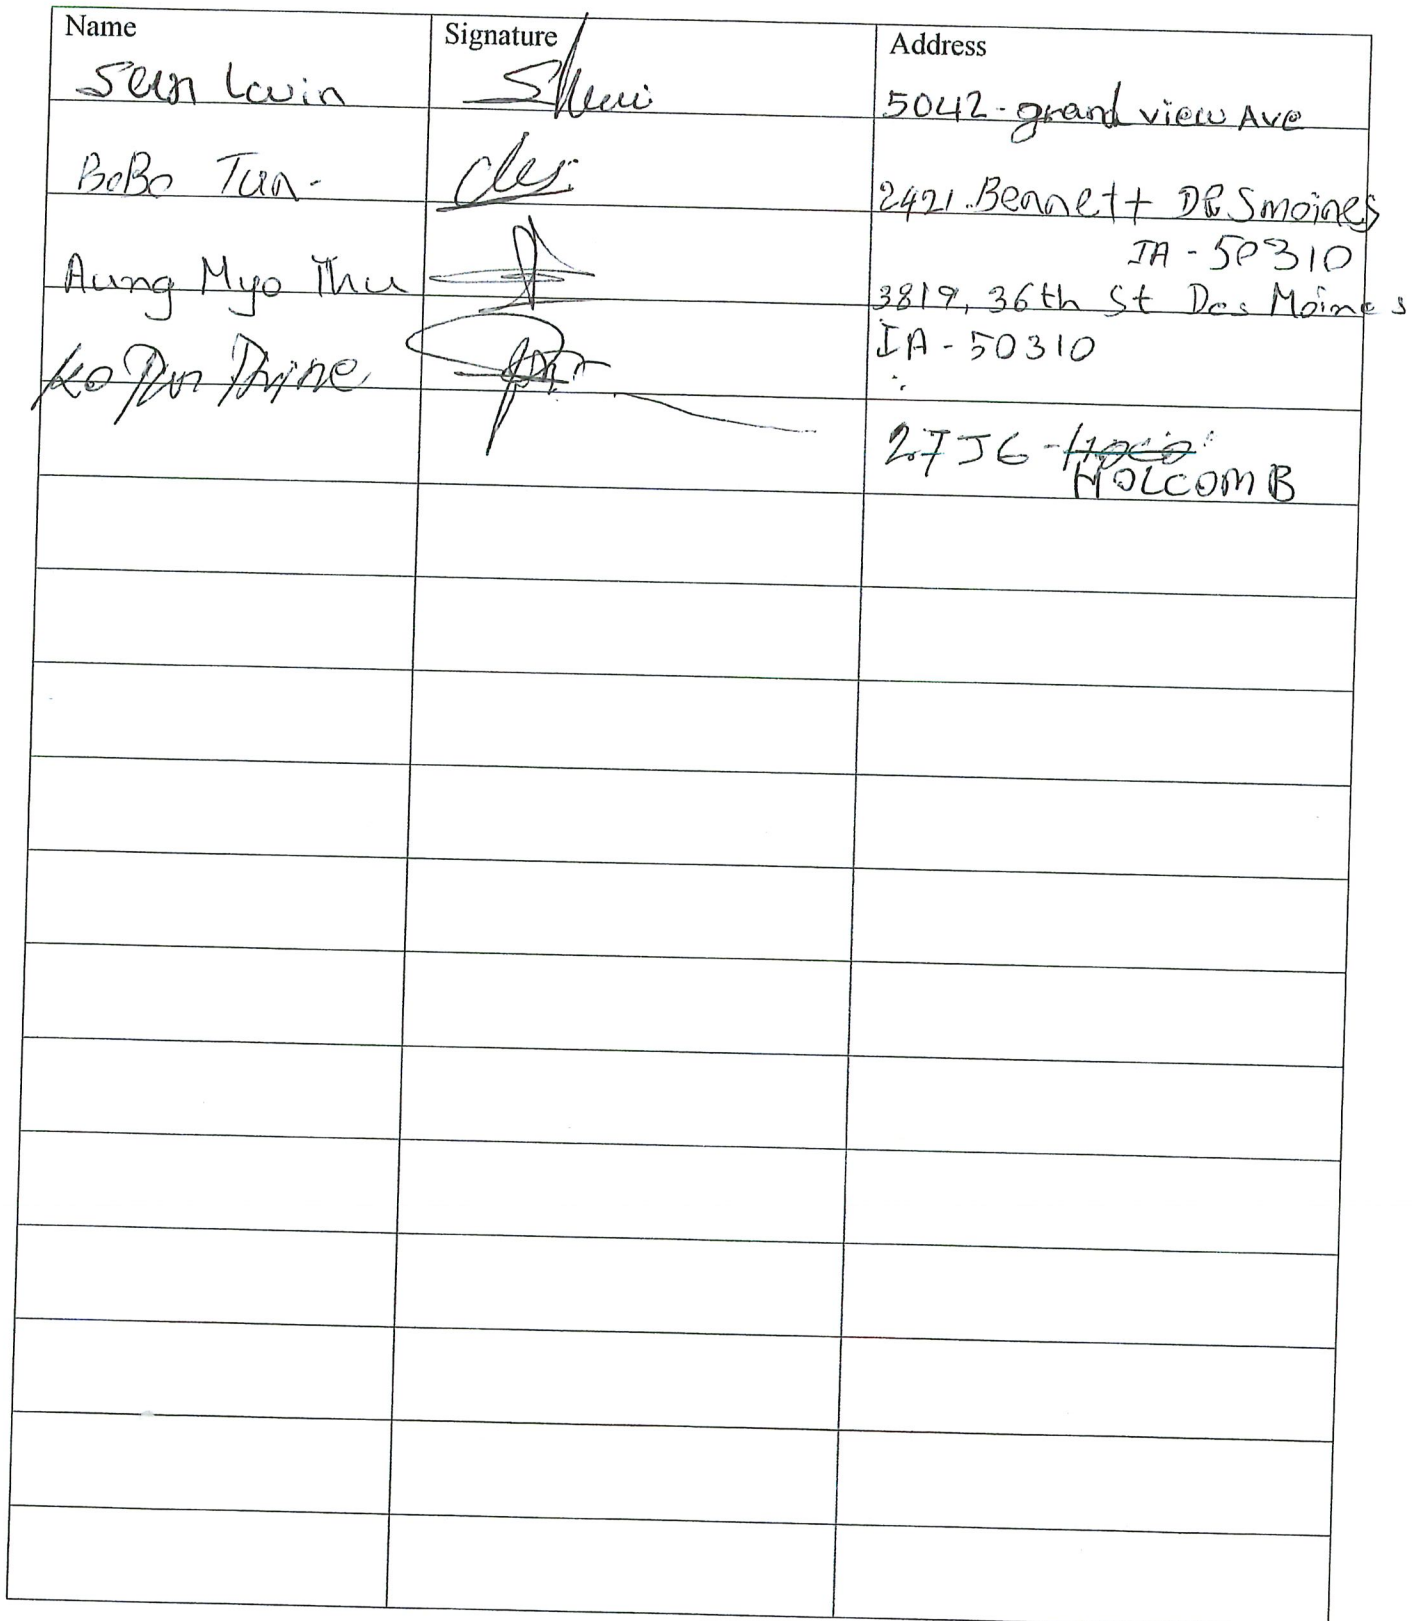 Name Signature Address
Sein Lwin 5042-grand view Ave
BoBo Tun- 2421.Bennett DESmoines
IA-50310
Aung Myo Thu 3819, 36th St Des Moines
IA-50310
Ko
2756-
HOLCOMB